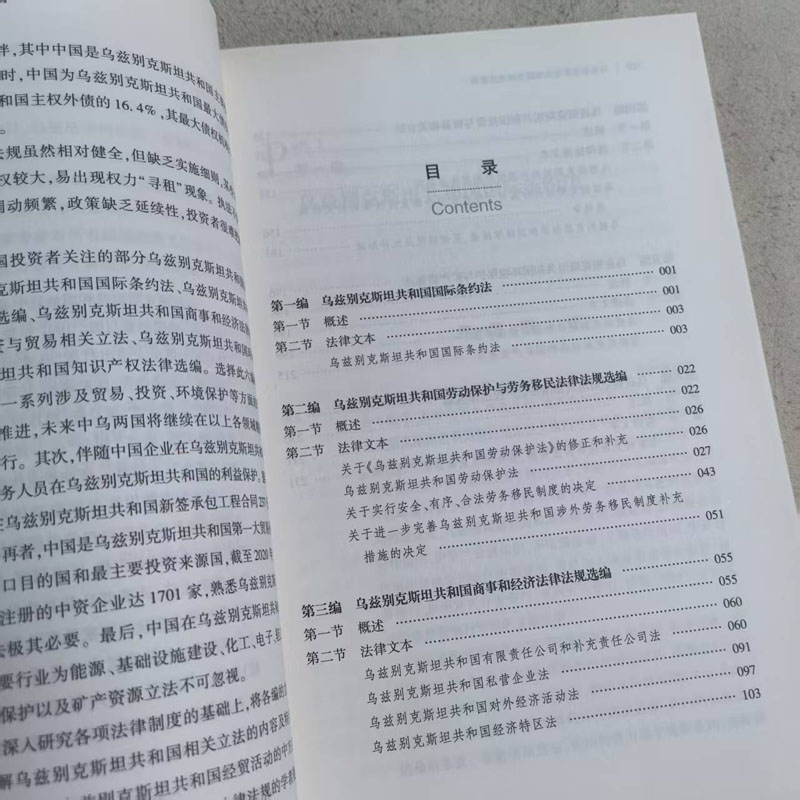 伴，其中中国是乌兹别克斯坦共和国主
时，中国为乌兹别克斯坦共和国最大债
和国主权外债的16.4%，其最大债权机构
法规虽然相对健全，但缺乏实施细则，某
权较大，易出现权力“寻租”现象。执法
调动频繁，政策缺乏延续性，投资者很难
国投资者关注的部分乌兹别克斯坦共和国
克斯坦共和国国际条约法、乌兹别克斯坦
选编、乌兹别克斯坦共和国商事和经济法
资与贸易相关立法、乌兹别克斯坦共和国
坦共和国知识产权法律选编。选择此六
一系列涉及贸易、投资、环境保护等方面
推进，未来中乌两国将继续在以上各领域
行。其次，伴随中国企业在乌兹别克斯坦
务人员在乌兹别克斯坦共和国的利益保护，
在乌兹别克斯坦共和国新签承包工程合同
再者，中国是乌兹别克斯坦共和国第一大贸易
口目的国和最主要投资来源国，截至2020年
注册的中资企业达1701家，熟悉乌兹别克
去极其必要。最后，中国在乌兹别克斯坦共
要行业为能源、基础设施建设、化工、电子、
保护以及矿产资源立法不可忽视。
深入研究各项法律制度的基础上，将各编的
解乌兹别克斯坦共和国相关立法的内容及
为乌兹别克斯坦共和国经贸活动的中
律法规的学
目 录
Contents
第一编 乌兹别克斯坦共和国国际条约法 001
第一节 概述 001
第二节 法律文本 003
乌兹别克斯坦共和国国际条约法 003
第二编 乌兹别克斯坦共和国劳动保护与劳务移民法律法规选编 022
第一节 概述 022
第二节 法律文本 026
关于《乌兹别克斯坦共和国劳动保护法》的修正和补充 026
乌兹别克斯坦共和国劳动保护法 027
关于实行安全、有序、合法劳务移民制度的决定 043
关于进一步完善乌兹别克斯坦共和国涉外劳务移民制度补充
措施的决定 051
第三编 乌兹别克斯坦共和国商事和经济法律法规选编 055
第一节 概述 055
第二节 法律文本 060
乌兹别克斯坦共和国有限责任公司和补充责任公司法 060
乌兹别克斯坦共和国私营企业法 091
乌兹别克斯坦共和国对外经济活动法 097
乌兹别克斯坦共和国经济特区法 103